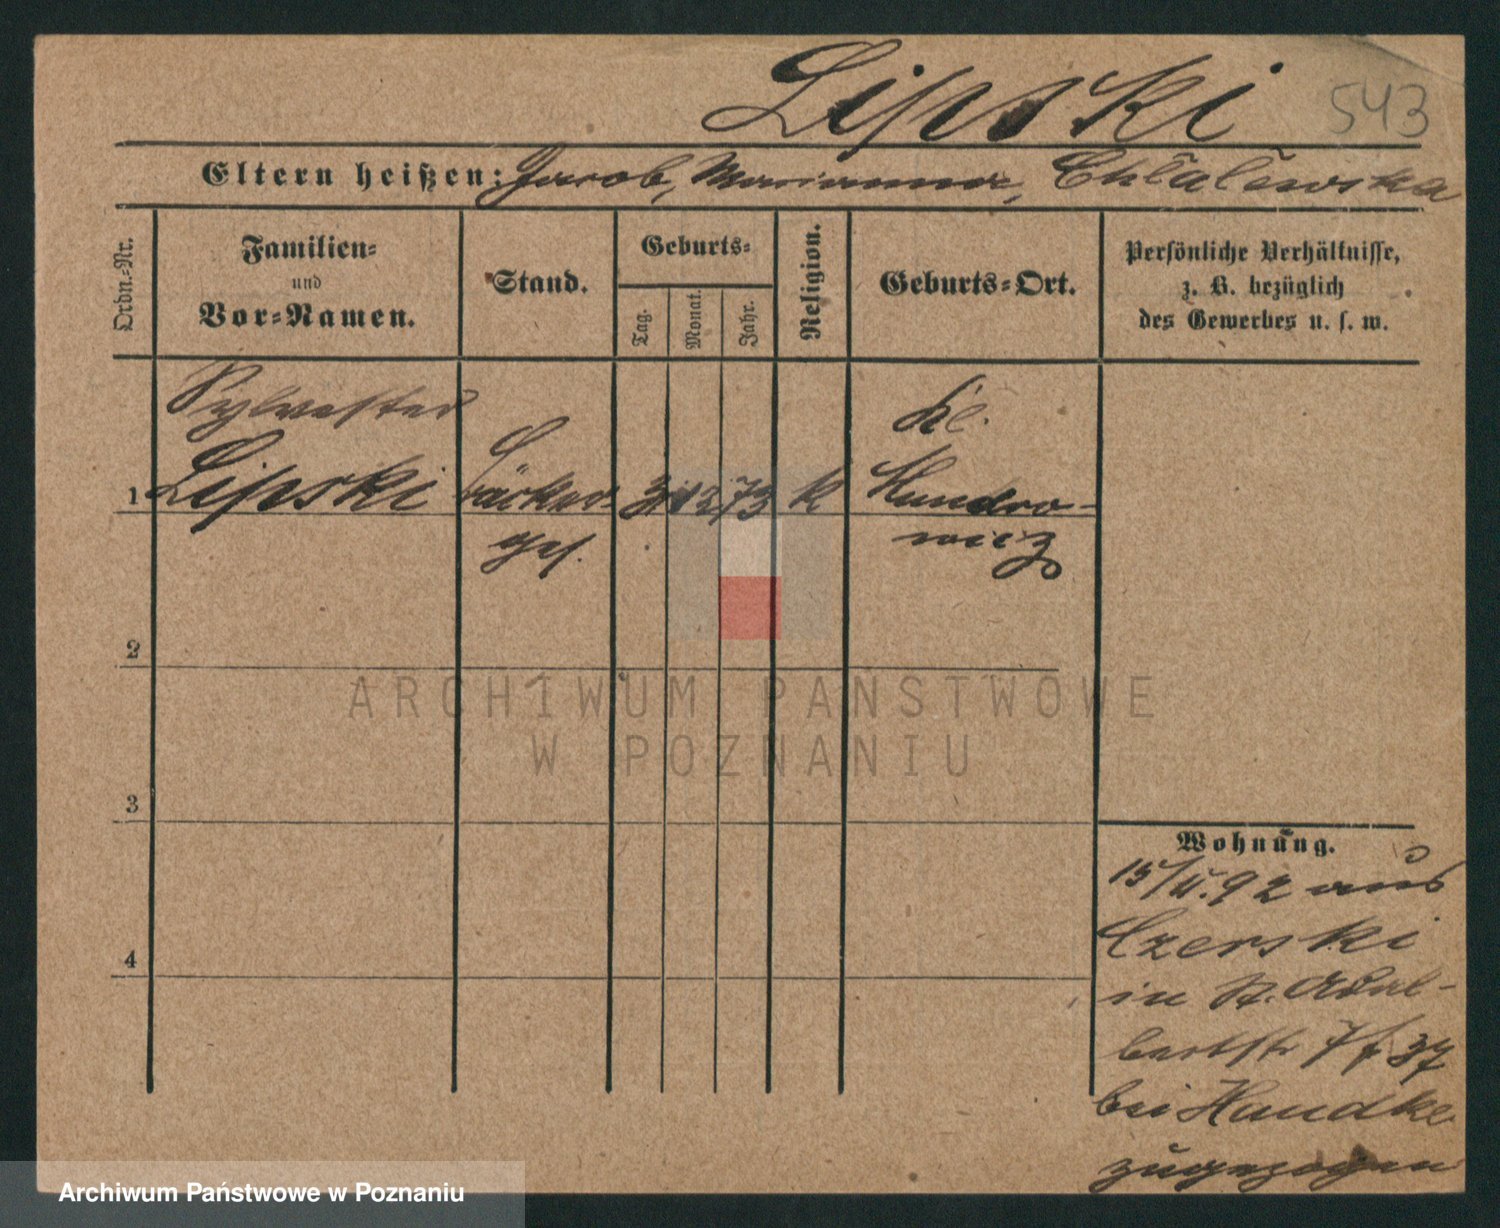 Lipski 543
Eltern heißen: Jacob, Marianna,
Ordn.-Nr.
Familien-
und
Vor-Namen.
Stand.
Geburts-
Tag.
Monat.
Jahr.
Religion.
Geburts-Ort.
Persönliche Verhältnisse,
z. B. bezüglich
des Gewerbes u. s. w.
Sylvester
Kl.
1 Lipski Bäcker- 31 12 73 k
ges.
2
3
4
Wohnung.
92 aus
Czerski
in St. Adal-
bertstr
bei Handke
zugezogen
ARCHIWUM PAŃSTWOWE
W POZNANIU
Archiwum Państwowe w Poznaniu